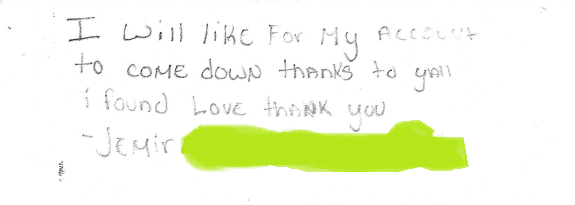 I Will like For My Account
to COME down thanks to yall
i found Love thank you
-JEMir